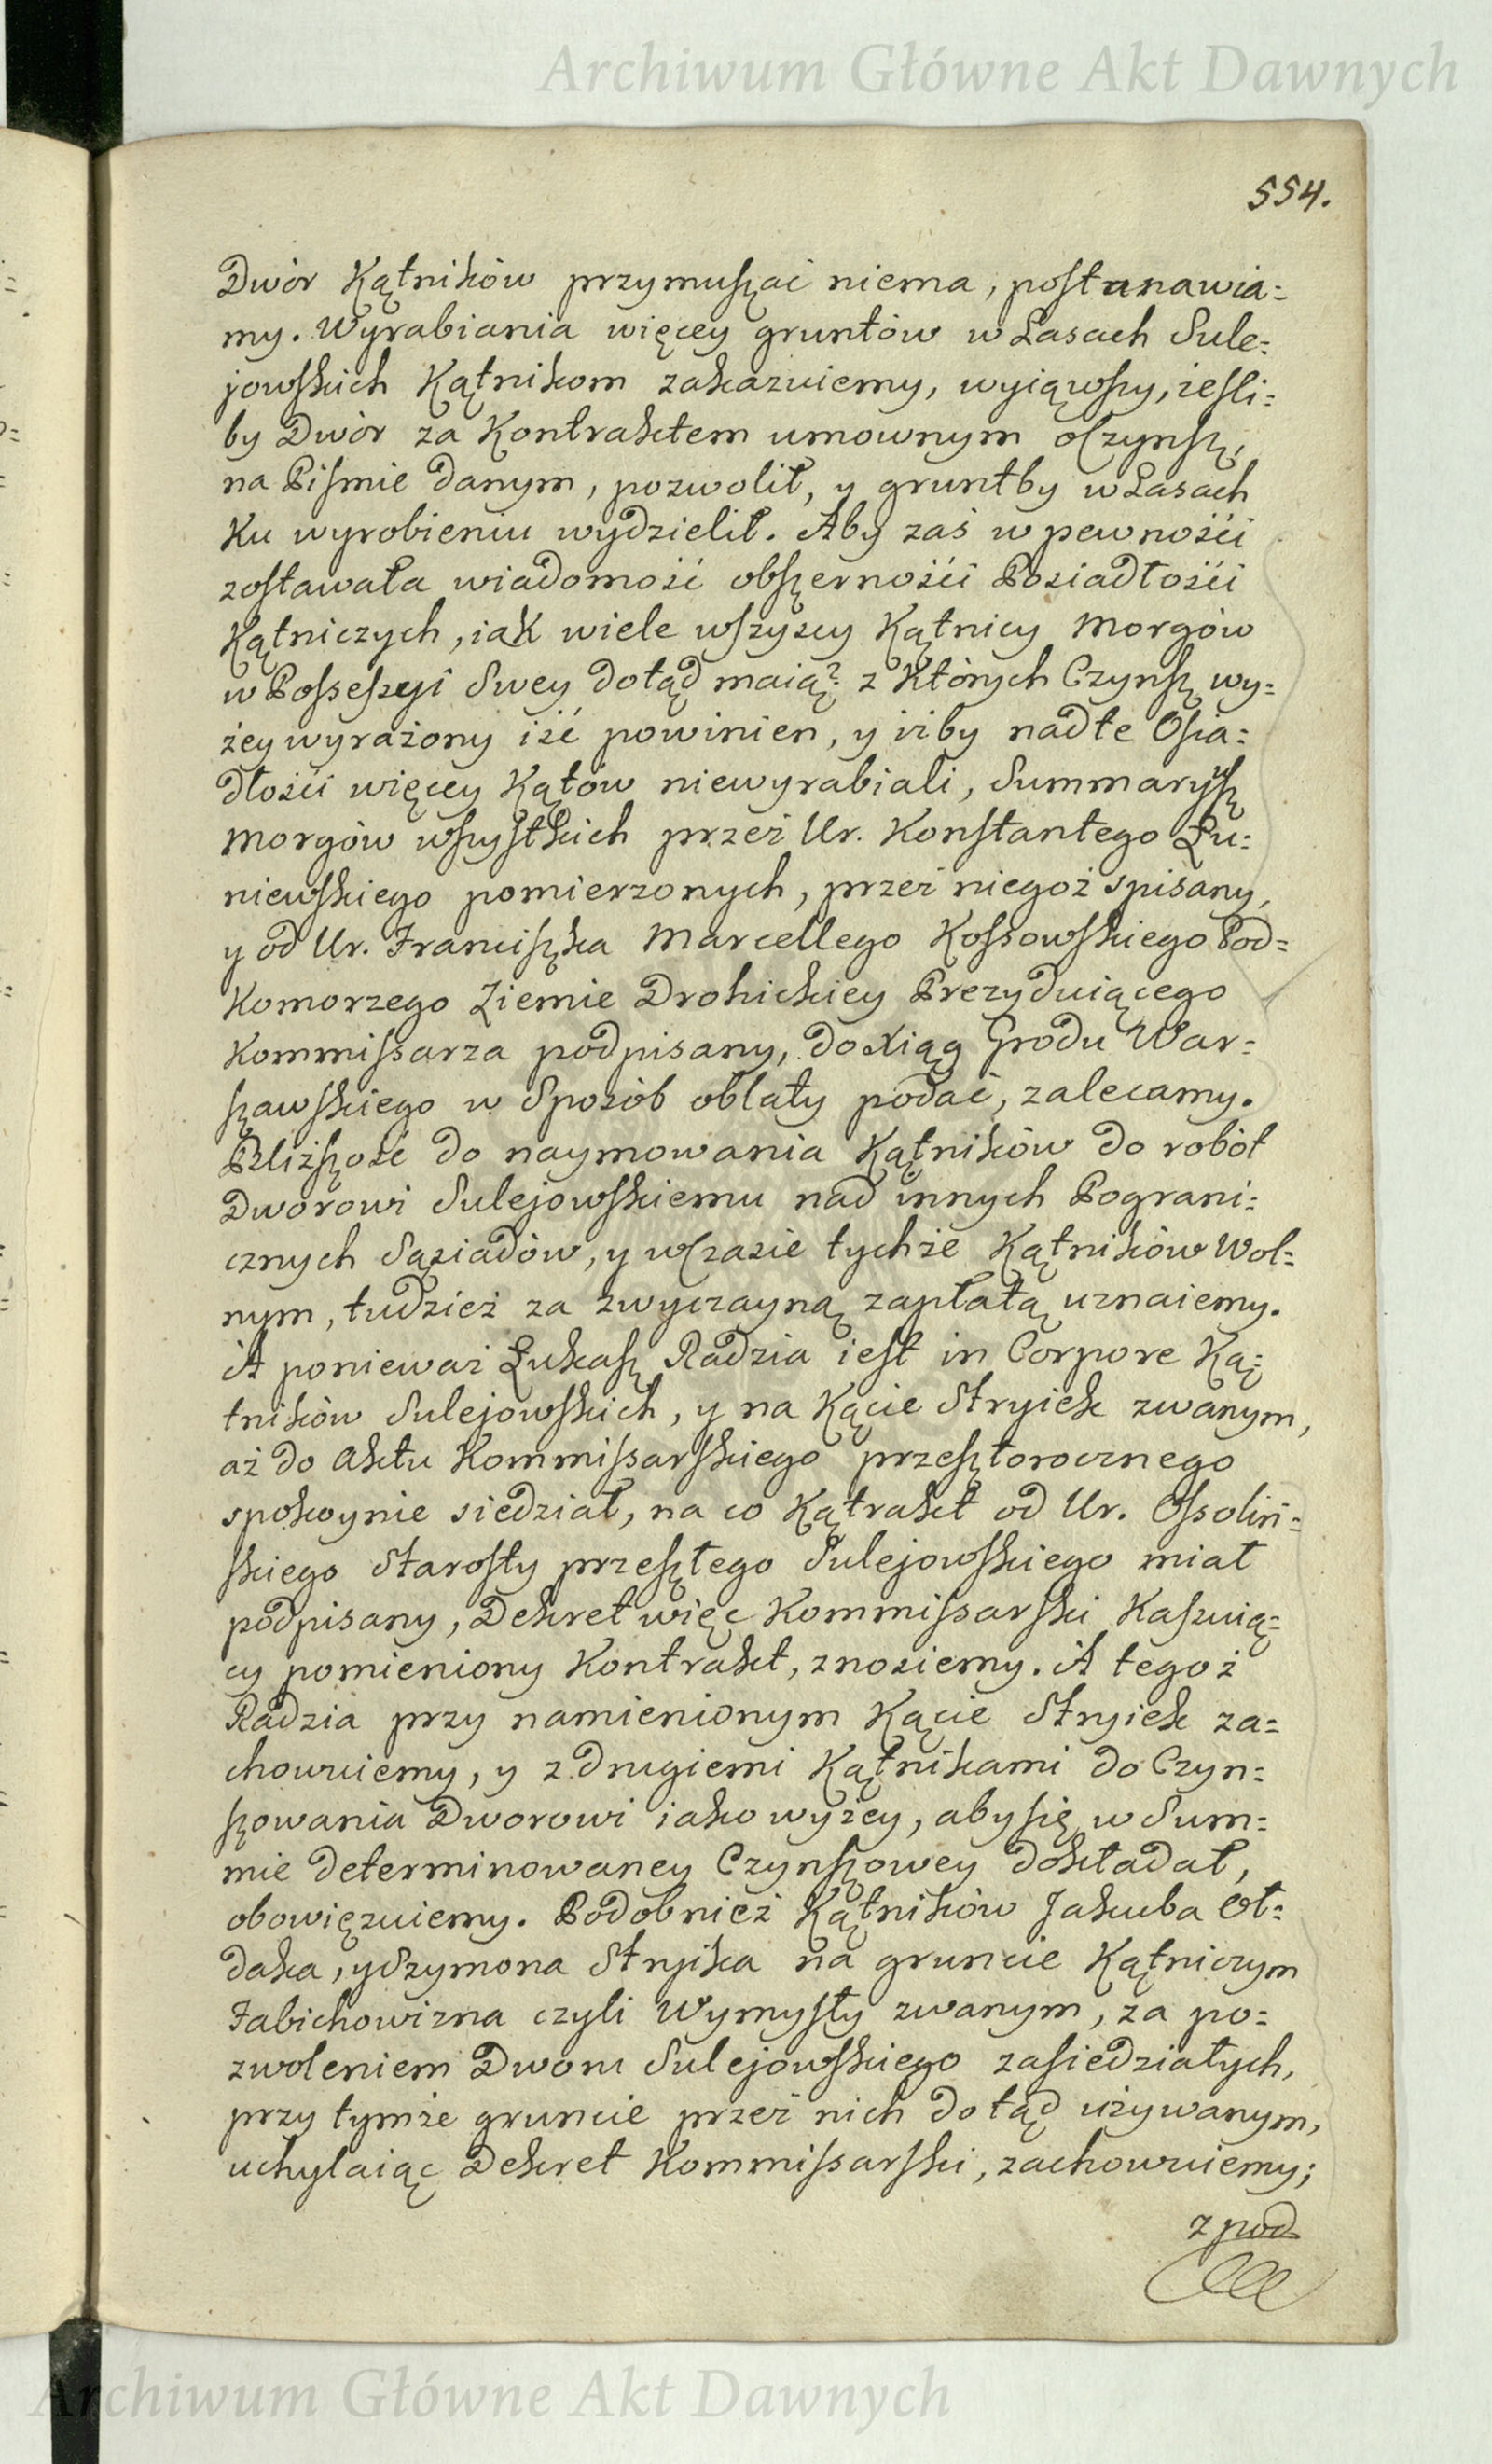 Archiwum Główne Akt Dawnych
554.
Dwór Kątników przymuszać niema, postanawia=
my. Wyrabiania więcey gruntów w Lasach Sule=
jowskich Kątnikom zakazuiemy, wyiąwszy, ieśli=
by Dwór za Kontraktem umownym o Czynsz,
na Piśmie danym, pozwolił, y gruntby w Lasach
Ku wyrobieniu wydzielił. Aby zaś w pewności
zostawała wiadomość obszerności Posiadłości
Kątniczych, iak wiele wszyscy Kątnicy Morgów
w Possessyi Swey dotąd maią? z Których Czynsz wy=
żey wyrażony iść powinien, y iżby nadte Osia=
dłości więcey Kątów niewyrabiali, Summaryusz
Morgów wszystkich przez Ur. Konstantego Łu=
niewskiego pomierzonych, przez niegoż spisany,
y od Ur. Franciszka Marcellego Kossowskiego Pod=
Komorzego Ziemie Drohickiey Prezyduiącego
Kommissarza podpisany, do Xiąg Grodu War=
szawskiego w Sposób oblaty podać, zalecamy.
Bliższość do naymowania Kątników do robót
Dworowi Sulejowskiemu nad innych Pograni=
cznych Sąsiadów, y w Czasie tychże Kątników Wol=
nym, tudzież za zwyczayną zapłatą uznaiemy.
A ponieważ Łukasz Radzia iest in Corpore Ką=
tników Sulejowskich, y na Kącie Stryiek zwanym,
aż do Aktu Kommissarskiego przeszłorocznego
spokoynie siedział, na co Kątrakt od Ur. Ossoliń=
skiego Starosty przeszłego Sulejowskiego miał
podpisany, Dekret więc Kommissarski Kassuią=
cy pomieniony Kontrakt, znosiemy. A tegoż
Radzia przy namienionym Kącie Stryiek za=
chowuiemy, y z drugiemi Kątnikami do Czyn=
szowania Dworowi iako wyżey, aby się w Sum=
mie determinowaney Czynszowey dokładał,
obowięzuiemy. Podobnież Kątników Jakuba Oł=
daka, y Szymona Stryika na gruncie Kątniczym
Fabichowizna czyli Wymysły zwanym, za po=
zwoleniem Dworu Sulejowskiego zasiedziałych,
przy tymże gruncie przez nich dotąd używanym,
uchylaiąc Dekret Kommissarski, zachowuiemy;
z pod
Archiwum Główne Akt Dawnych